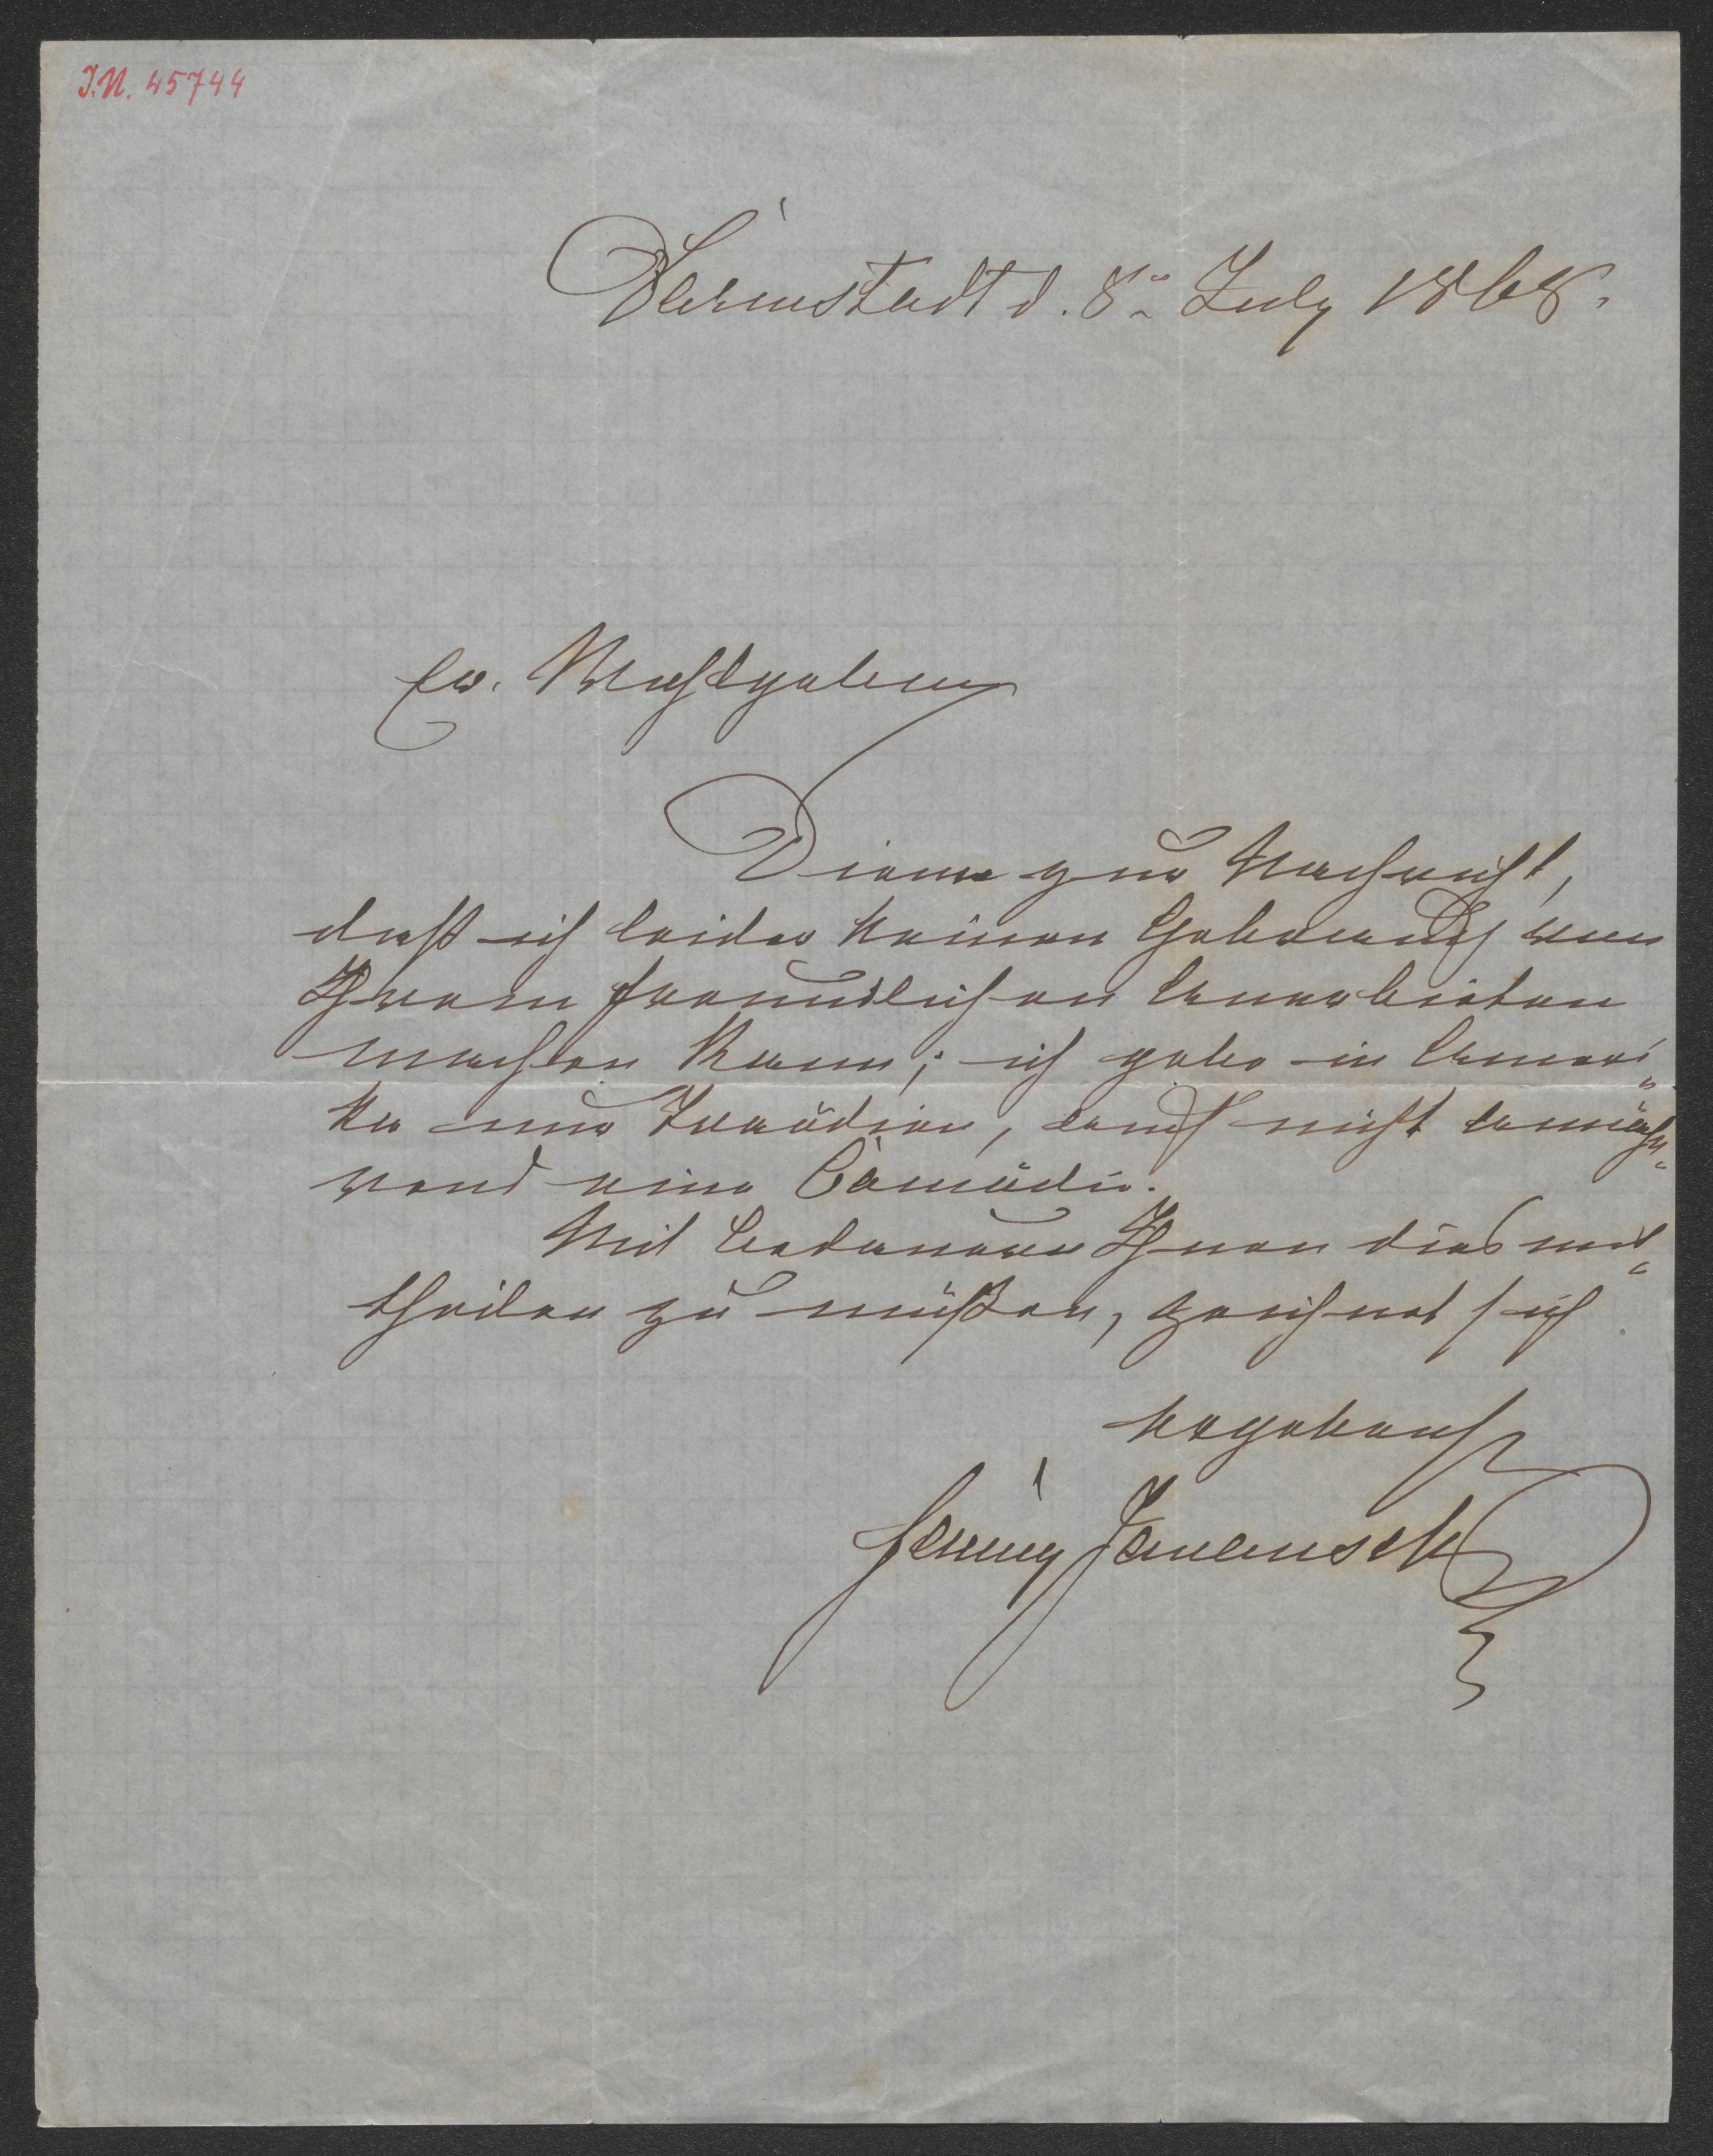 I.N. 45744
Darmstadt d. 8ten July 1868.
Ew. Wohlgeboren
Diene zur Nachricht,
daß ich leider keinen Gebrauch von
Ihrem freundlichen Anerbieten
machen kann; ich gebe in Ameri„
ka nur Tragödien, auch nicht
eine Comödie.
Mit Bedauern Ihnen dies mit„
theilen zu müßen, zeichnet sich
ergebenst
Fanny Janauschek